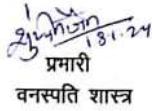 13.1.24
प्रभारी
वनस्पति शास्त्र